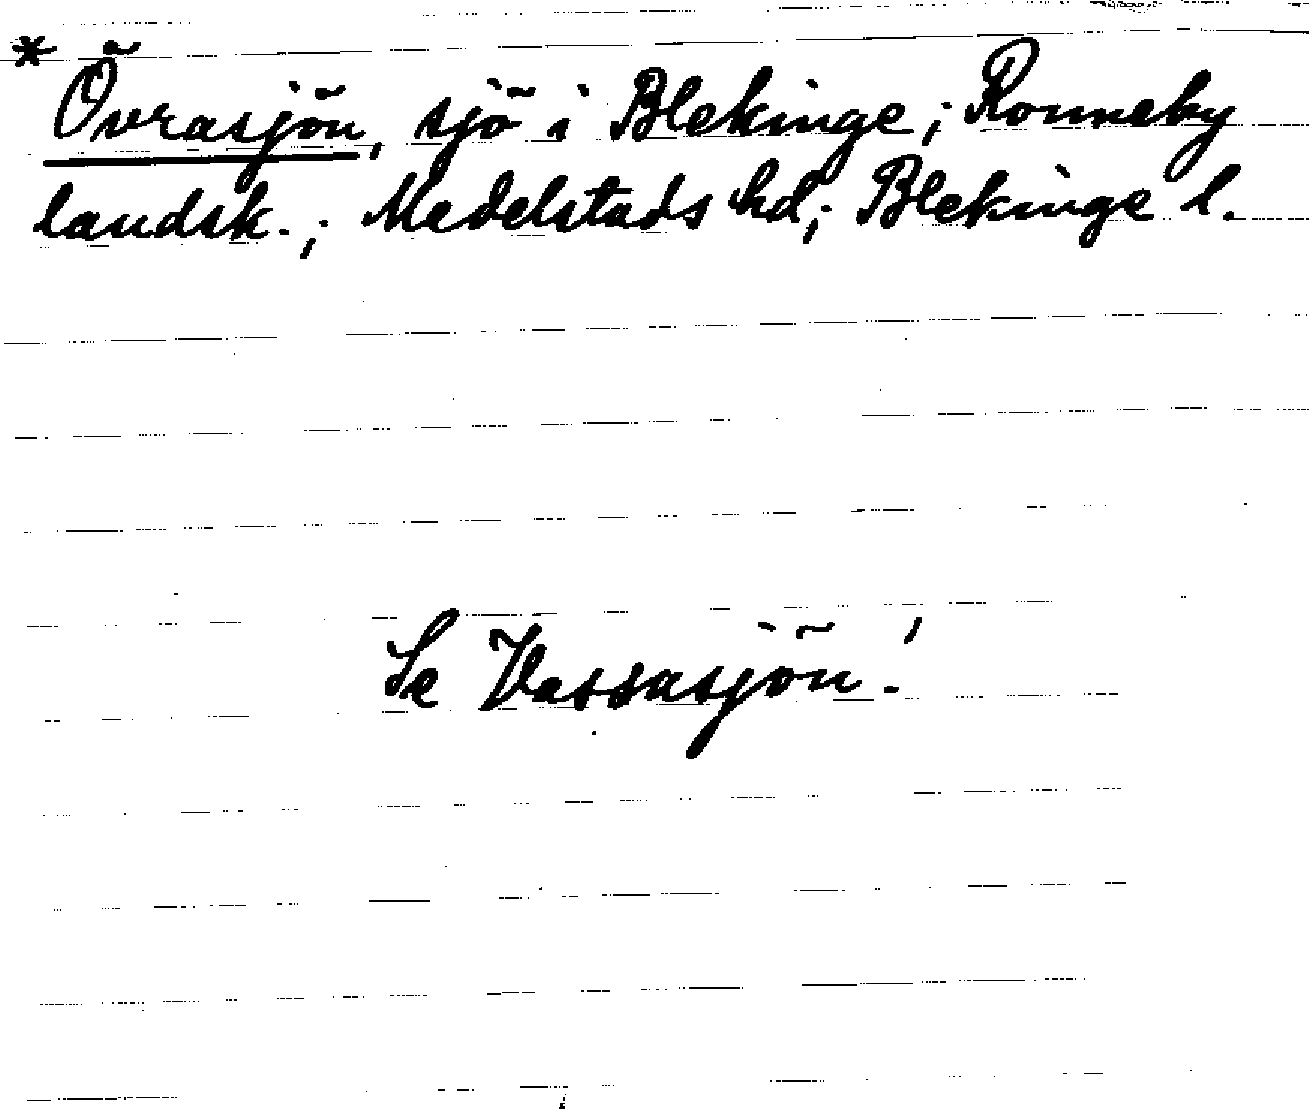 * Övrasjön, sjö i Blekinge; Ronneby
landsk.; Medelstads hd; Blekinge l.
Se Vassasjön!